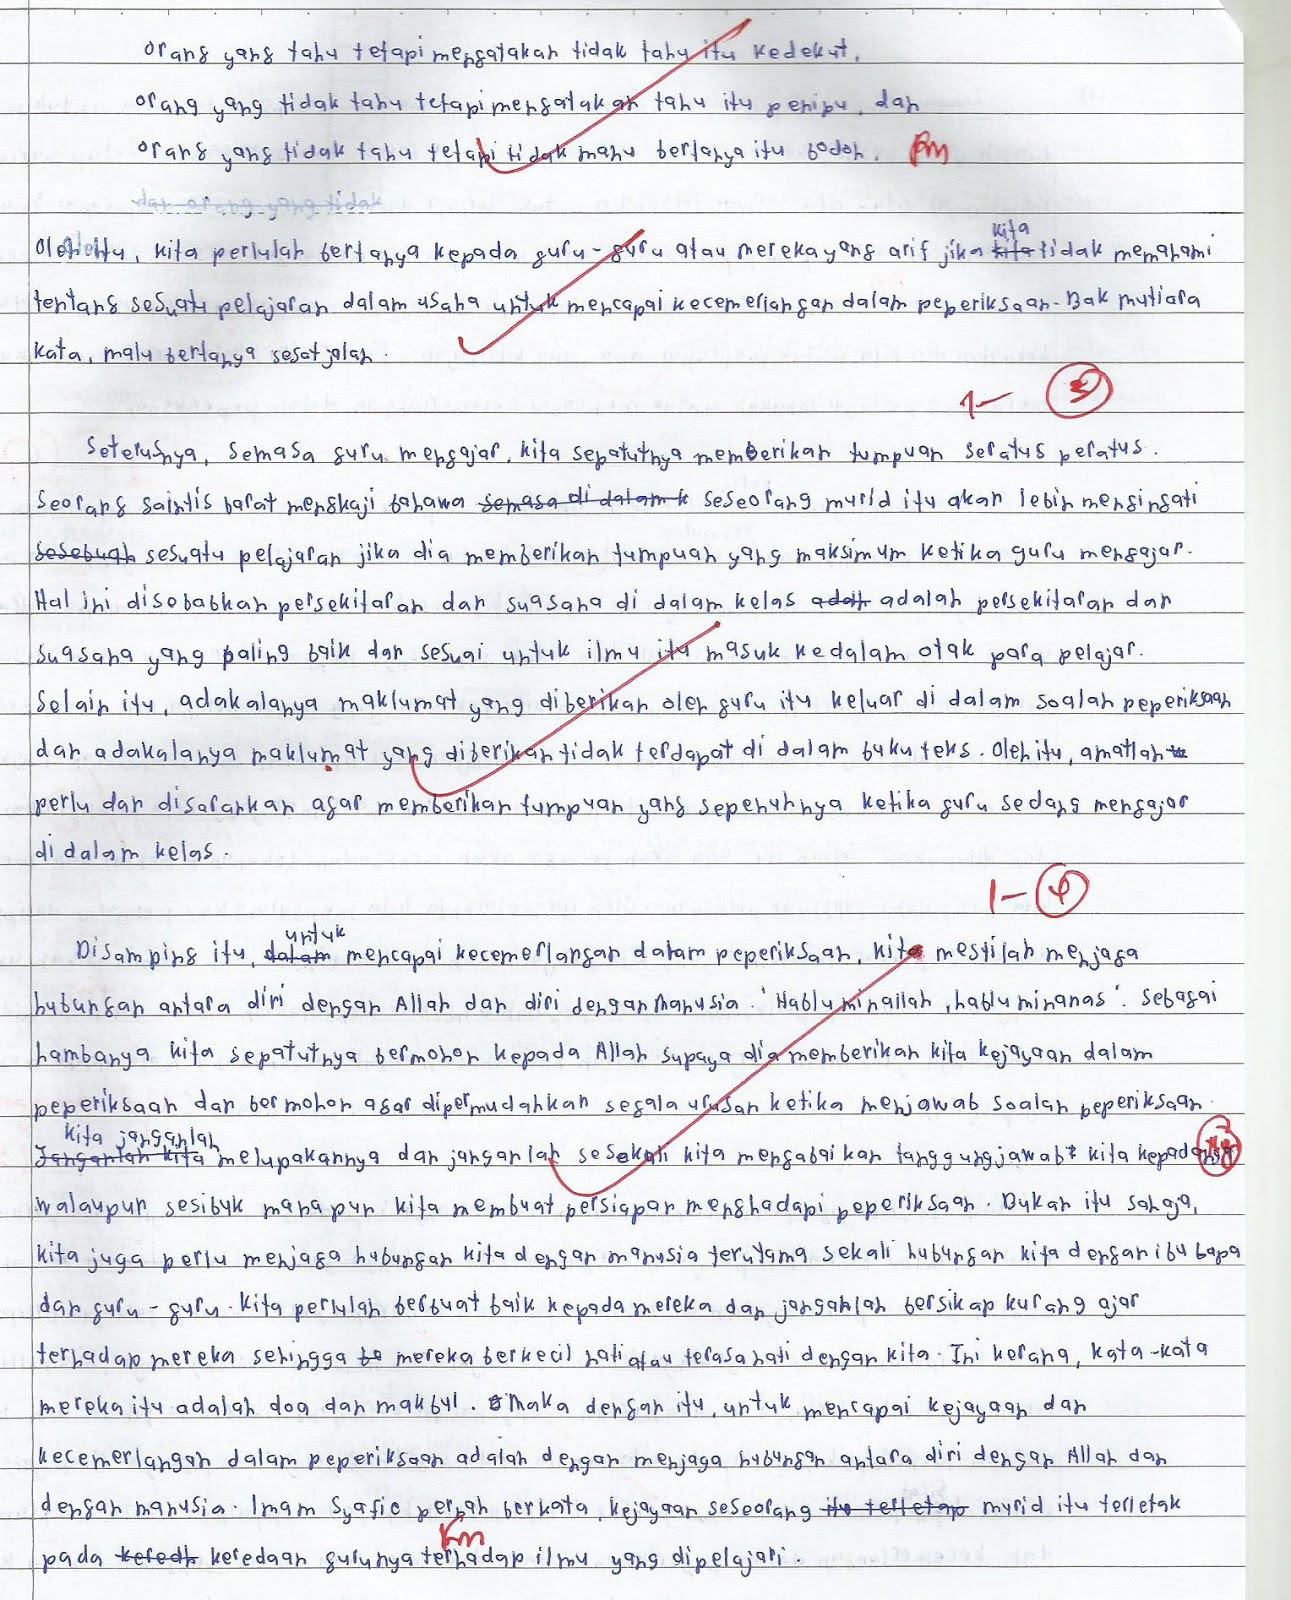 orang yang tahu tetapi mengatakan tidak tahu itu kedekut,
orang yang tidak tahu tetapi mengatakan tahu itu penipu, dan
orang yang tidak tahu tetapi tidak mahu bertanya itu bodoh.
Oleh itu, kita perlulah bertanya kepada guru-guru atau mereka yang arif jika kita tidak memahami
tentang sesuatu pelajaran dalam usaha untuk mencapai kecemerlangan dalam peperiksaan. Bak mutiara
kata, malu bertanya sesat jalan.
1-
Seterusnya, semasa guru mengajar, kita sepatutnya memberikan tumpuan seratus peratus.
Seorang saintis barat mengkaji bahawa semasa di dalam k seseorang murid itu akan lebih mengingati
sesebuah sesuatu pelajaran jika dia memberikan tumpuan yang maksimum ketika guru mengajar.
Hal ini disebabkan persekitaran dan suasana di dalam kelas adalah persekitaran dan
suasana yang paling baik dan sesuai untuk ilmu itu masuk kedalam otak para pelajar.
Selain itu, adakalanya maklumat yang diberikan oleh guru itu keluar di dalam soalan peperiksaan
dan adakalanya maklumat yang diberikan tidak terdapat di dalam buku teks. Oleh itu, amatlah
perlu dan disarankan agar memberikan tumpuan yang sepenuhnya ketika guru sedang mengajar
di dalam kelas.
1- 4
untuk
Disamping itu, dalam mencapai kecemerlangan dalam peperiksaan, kita mestilah menjaga
hubungan antara diri dengan Allah dan diri dengan manusia. 'Hablu minallah, hablu minanas'. Sebagai
hambanya kita sepatutnya bermohon kepada Allah supaya dia memberikan kita kejayaan dalam
peperiksaan dan bermohon agar dipermudahkan segala urusan ketika menjawab soalan peperiksaan.
kita janganlah
Janganlah kita melupakannya dan janganlah sesekali kita mengabaikan tanggungjawab kita kepadanya
walaupun sesibuk manapun kita membuat persiapan menghadapi peperiksaan. Bukan itu sahaja,
kita juga perlu menjaga hubungan kita dengan manusia terutama sekali hubungan kita dengan ibu bapa
dan guru-guru. Kita perlulah berbuat baik kepada mereka dan janganlah bersikap kurang ajar
terhadap mereka sehingga be mereka berkecil hati atau terasa hati dengan kita. Ini kerana, kata-kata
mereka itu adalah doa dan makbul. Maka dengan itu, untuk mencapai kejayaan dan
kecemerlangan dalam peperiksaan adalah dengan menjaga hubungan antara diri dengan Allah dan
dengan manusia. Imam Syafie pernah berkata, kejayaan seseorang itu terletap murid itu terletak
pada keredh keredaan gurunya terhadap ilmu yang dipelajari.